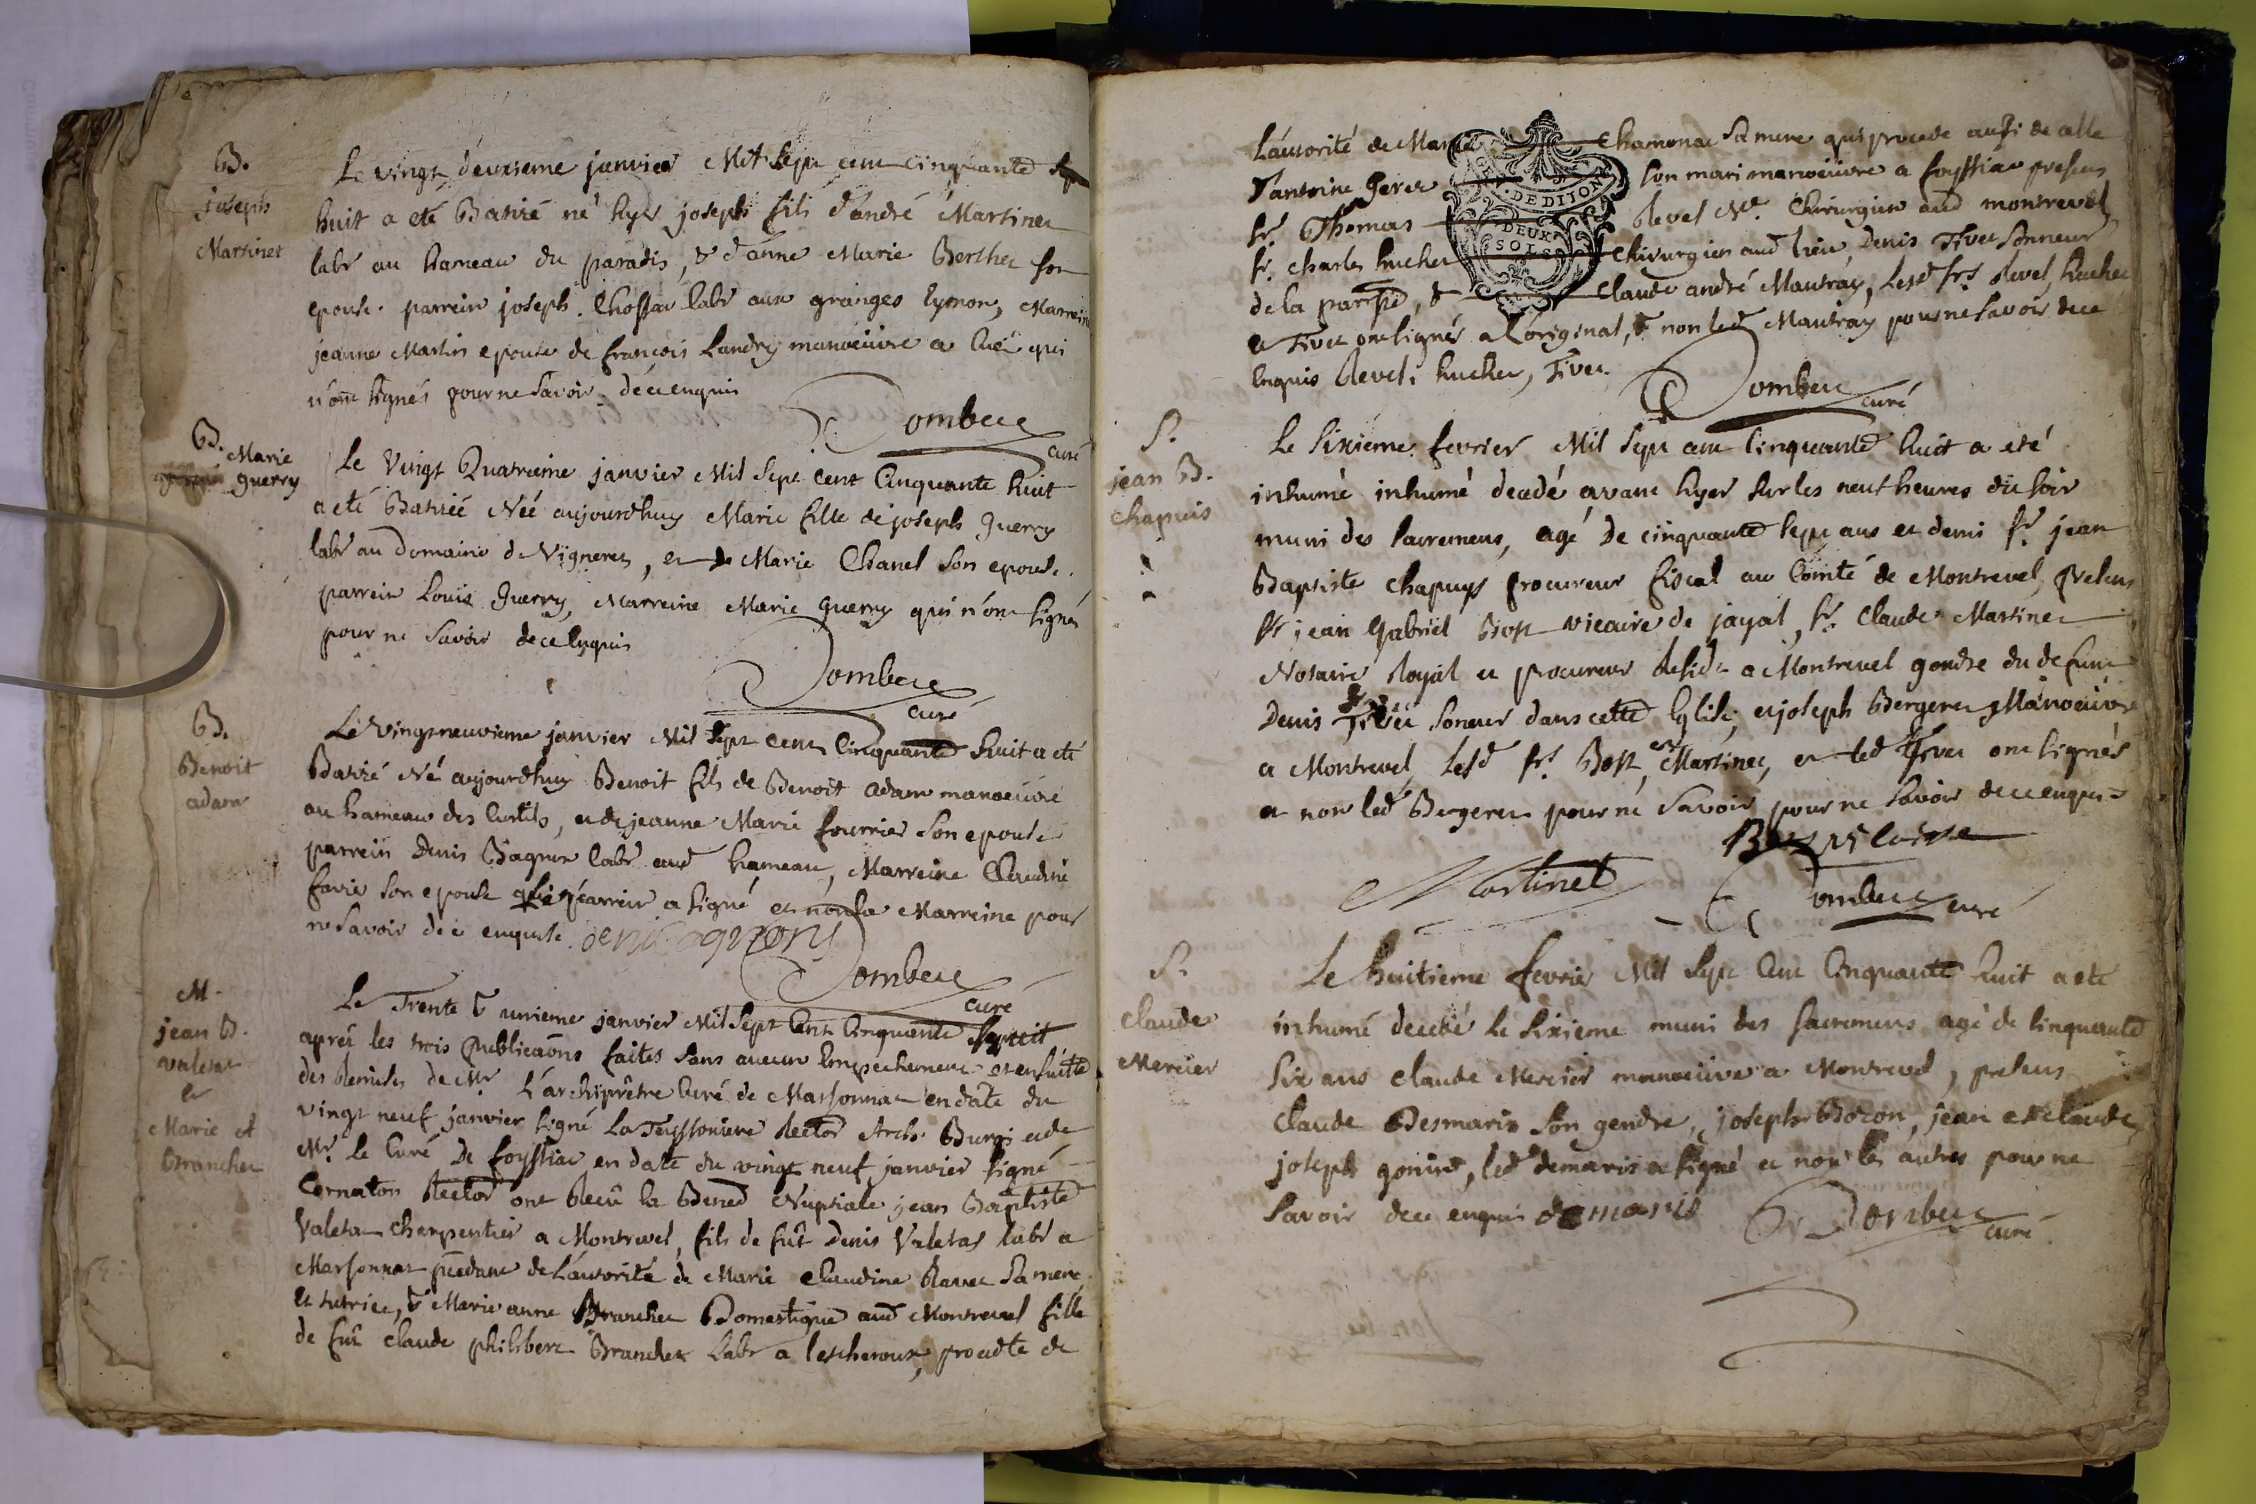 B.
joseph
Martinet
Le vingt deuxieme janvier Mil Sept cent cinquante
huit a eté Batizé né hyer joseph fils d'andré Martinet
labr au hameau du paradis, & d'anne Marie Berthet son
epouse. parrein joseph Chossat labr aux granges Eymon, Marreine
jeanne Martin epouse de françois Landry manoeüvre a Cuet qui
n'ont signés pour ne Savoir dece enquis
Dombeÿ
curé
B. Marie
guerry
Le Vingt Quatrieme janvier Mil Sept cent Cinquante huit
a eté Batizée Née aujourdhuy Marie fille de joseph guerry
labr au Domaine de Vigneret, et de Marie Chanel Son epouse.
parrein Louis guerry, Marreine Marie guerry qui n'ont signés
pour ne Savoir dece enquis
curé
B.
Benoit
adam
Le Vingtneuvieme janvier Mil Sept cent Cinquante huit a eté
Batizé Né aujourdhuy Benoit fils de Benoit adam manoeüvre
au hameau des Curtils, et de jeanne Marie fourrier Son epouse
parrein Denis Bagnon labr aud hameau, Marreine Claudine
favre Son epouse le parrein a signé et non la Marreine pour
ne Savoir de ce enquise.
curé
M.
jean B.
valetat
et
Marie A
Branchet
Le Trente & unieme janvier Mil Sept Cent Cinquante huit
aprés les trois publicaõns faites Sans aucun Empechement et ensuitte
des Remises de Mr L'archiprêtre Curé de Marsonnat en date du
vingt neuf janvier signé La Teyssoniere Rector Arch. Burgi et de
Mr le Curé De foyssiat en date du vingt neuf janvier signé
Cornaton Rector ont Reçû la Bened Nuptiale jean Baptiste
Valetat charpentier a Montrevel, fils de fut Denis Valetat labr a
Marsonnat pcedant de L'autorité de Marie Claudine Ravet Sa mere
et tutrice, & Marie anne Branchet Domestique aud Montrevel fille
de fut claude philibert Branchet Labr a lescheroux, procedte de
L'autorité de Marie Chamonat Sa mere qui procede aussi de celle
D'antoine Son mari manoeüvre a foyssiat presens
Sr. Thomas Revel Me. Chirurgien aud montrevel
Sr. charles hucher Chirurgien aud lieu, Denis Tivet Sonneur
de la parrse, & Claude andré Mautray, Lesd Srs. Revel, hucher
et Tivet ont signés a L'original, & non led Mautray pour ne Savoir dece
Enquis Revel, hucher, Tivet.
DE DIJON
DEUX
SOLS
curé
S.
jean B.
chapuis
Le Sixieme fevrier Mil Sept cent Cinquante huit a eté
inhumé inhumé decedé avant hyer Sur les neuf heures du soir
muni des Sacremens, agé De cinquante Sept ans et demi Sr. jean
Baptiste chapuys procureur fiscal au Comté de Montrevel, presens
Sr jean Gabriel Bost vicaire de jayat, Sr. Claude Martinet
Notaire Royal et procureur Residt a Montrevel gendre du defunt
Denis Tivet Soneur dans cette Eglise, et joseph Bergeret Manoeuvre
a Montrevel, Lesd Srs. Bost, et Martinet, et led Tivet ont signés
et non led Bergeret pour ne Savoir pour ne Savoir dece enquis
Martinet
curé
S.
Claude
Mercier
Le huitieme fevrie Mil Sept Cent Cinquante huit a eté
inhumé decedé Le Sixieme muni des Sacremens agé de Cinquante
Six ans claude Mercier manoeuvre a Montrevel, presens
Claude Desmaris Son gendre, joseph Bozon, jean et claude,
joseph gonint, led demaris a signé et non les autres pour ne
Savoir dece enquis demaris
curé